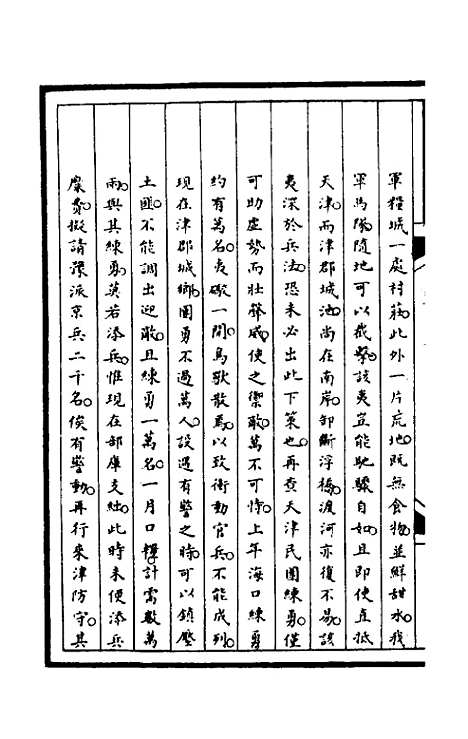 軍糧城一處村莊。此外一片荒地。既無食物。並鮮甜水。我
軍馬隊隨地可以截擊。該夷豈能馳驟自如。且即使直抵
天津。而津郡城池。尚在南岸。卸斷浮橋。渡河亦復不易。該
夷深於兵法。恐未必出此下策也。再查天津民團練勇。僅
可助虛勢而壯聲威。使之禦敵。萬不可恃。上年海口練勇
約有萬名。夷礮一開。鳥獸散焉。以致衝動官兵。不能成列。
現在津郡城鄉。團勇不過萬人。設遇有警之時。可以鎮壓
土匪。不能調出迎敵。且練勇一萬名。一月口糧。計需數萬
兩。與其練勇。莫若添兵。惟現在部庫支絀。此時未便添兵
糜費。擬請豫派京兵二千名。俟有警動。再行來津防守。其